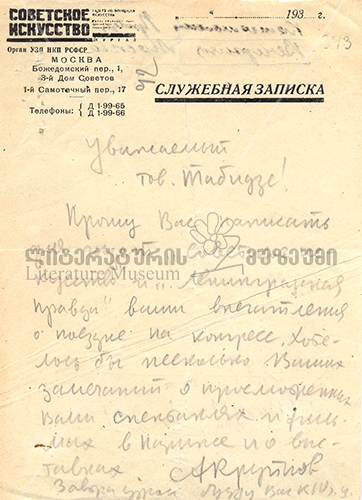 СОВЕТСКОЕ
ИСКУССТВО
ЖУРНАЛ
Орган УЗП НКП РСФСР
МОСКВА
Божедомский пер., 1,
3-й Дом Советов
1-й Самотечный пер., 17
Телефоны: { Д 1-99-65
Д 1-99-66
193 г.
СЛУЖЕБНАЯ ЗАПИСКА
Уважаемый
тов. Табидзе!
Прошу Вас написать
ლიტერატურის მუზეუმი
Literature Museum
и "Ленинградская
правда" ваши впечатления
о поездке на конгресс. Хоте-
лось бы несколько Ваших
замечаний о просмотренных
вами спектаклях и филь-
мах в Париже и о выс-
тавках
Завтра утром